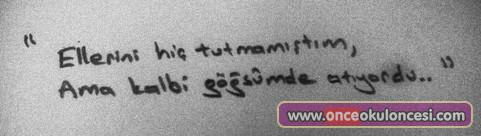 " Ellerini hiç tutmamıştım,
Ama kalbi göğsümde atıyordu.. "
www.onceokuloncesi.com